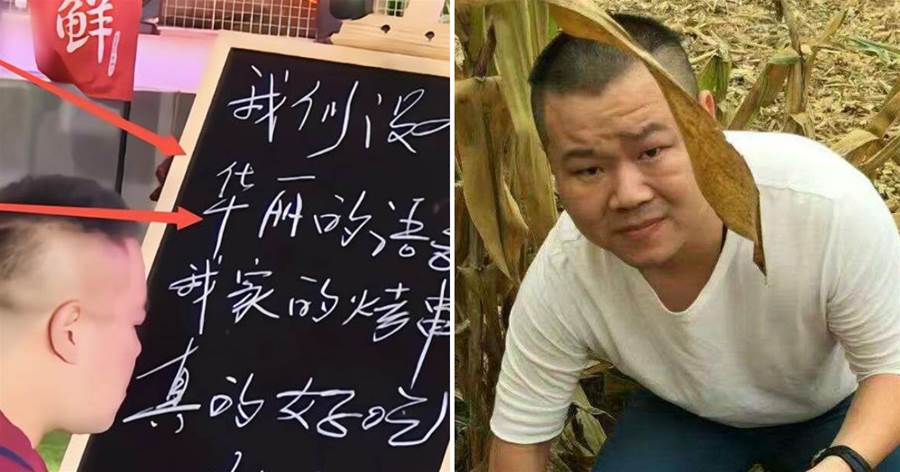 鲜
我们没
华丽的语言
我家的烤串
真的好吃